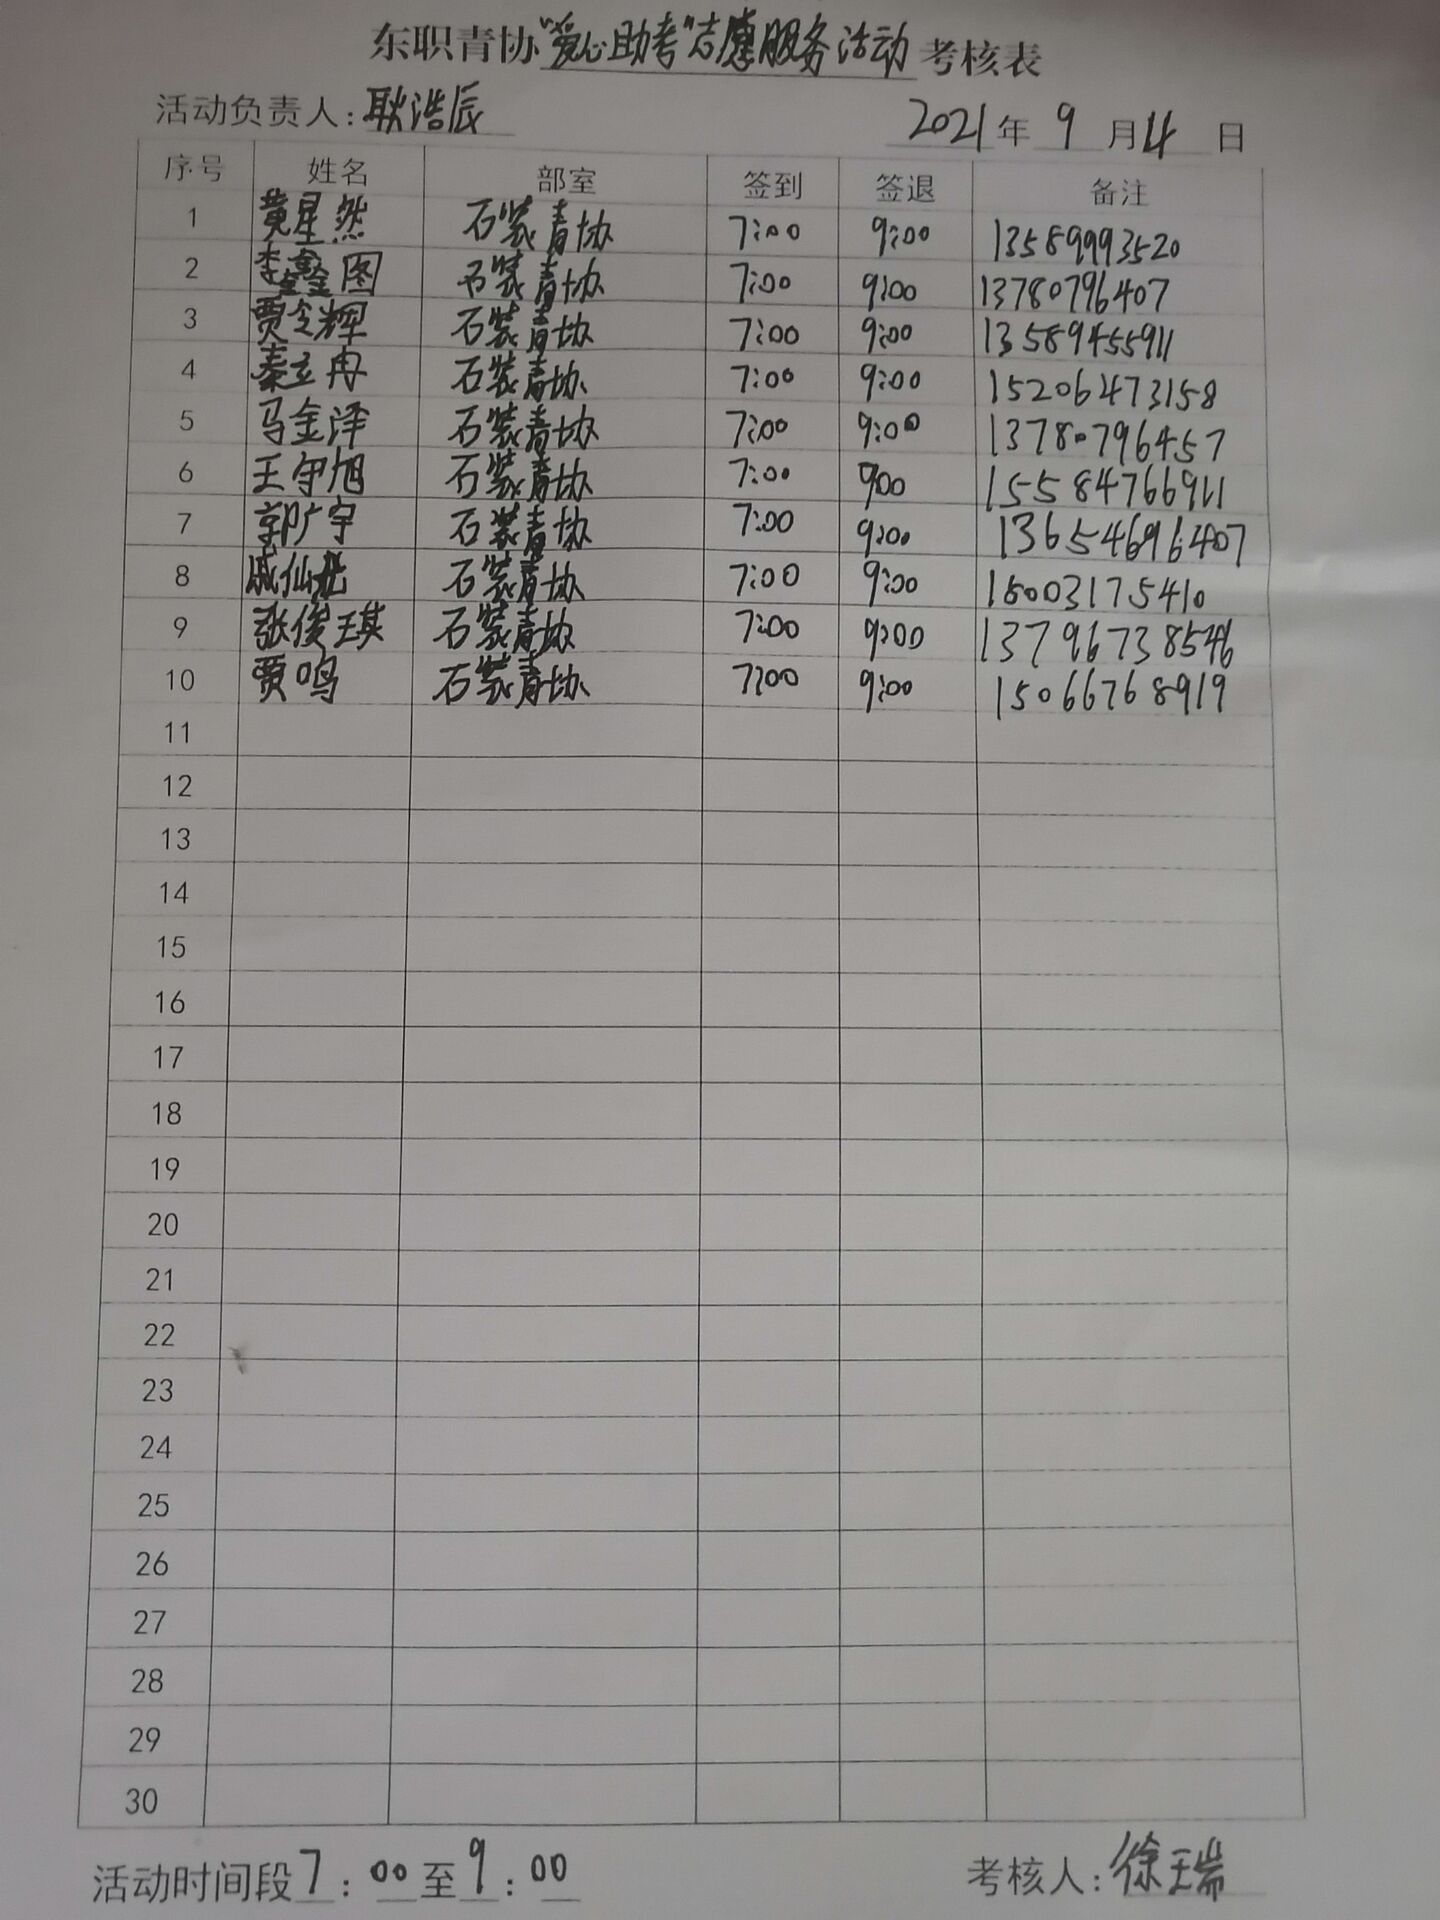 东职青协“爱心助考”志愿服务活动考核表
活动负责人:耿浩辰 2021年 9 月 4 日
序号 姓名 部室 签到 签退 备注
1 黄星然 石装青协 7:00 9:00 13589993520
2 李鑫图 石装青协 7:00 9:00 13780796407
3 贾令辉 石装青协 7:00 9:00 13589455911
4 秦立冉 石装青协 7:00 9:00 15206473158
5 马金泽 石装青协 7:00 9:00 13780796457
6 王守旭 石装青协 7:00 900 15584766911
7 郭广宇 石装青协 7:00 9:00 13654696407
8 戚仙 石装青协 7:00 9:00 18003175410
9 张俊琪 石装青协 7:00 9:00 13796738546
10 贾鸣 石装青协 7:00 9:00 15066768919
11
12
13
14
15
16
17
18
19
20
21
22
23
24
25
26
27
28
29
30
活动时间段7:00至9:00 考核人:徐瑞